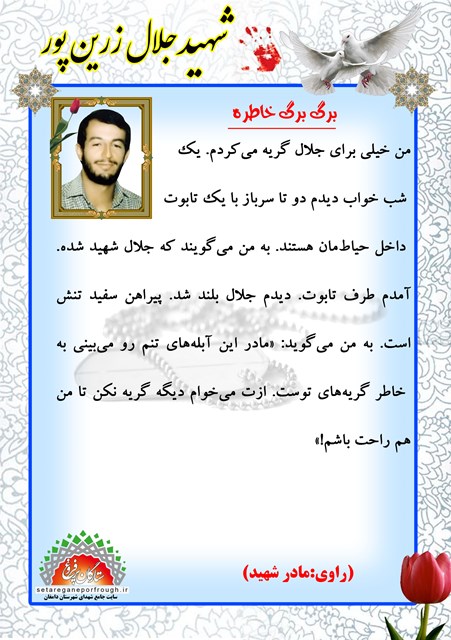 شهید جلال زرین پور
برگ برگ خاطره
من خیلی برای جلال گریه می‌کردم. یک
شب خواب دیدم دو تا سرباز با یک تابوت
داخل حیاط‌مان هستند. به من می‌گویند که جلال شهید شده.
آمدم طرف تابوت. دیدم جلال بلند شد. پیراهن سفید تنش
است. به من می‌گوید: «مادر این آبله‌های تنم رو می‌بینی به
خاطر گریه‌های توست. ازت می‌خوام دیگه گریه نکن تا من
هم راحت باشم!»
(راوی:مادر شهید)
ستارگان پرفروغ
setareganeporfrough.ir
سایت جامع شهدای شهرستان دامغان